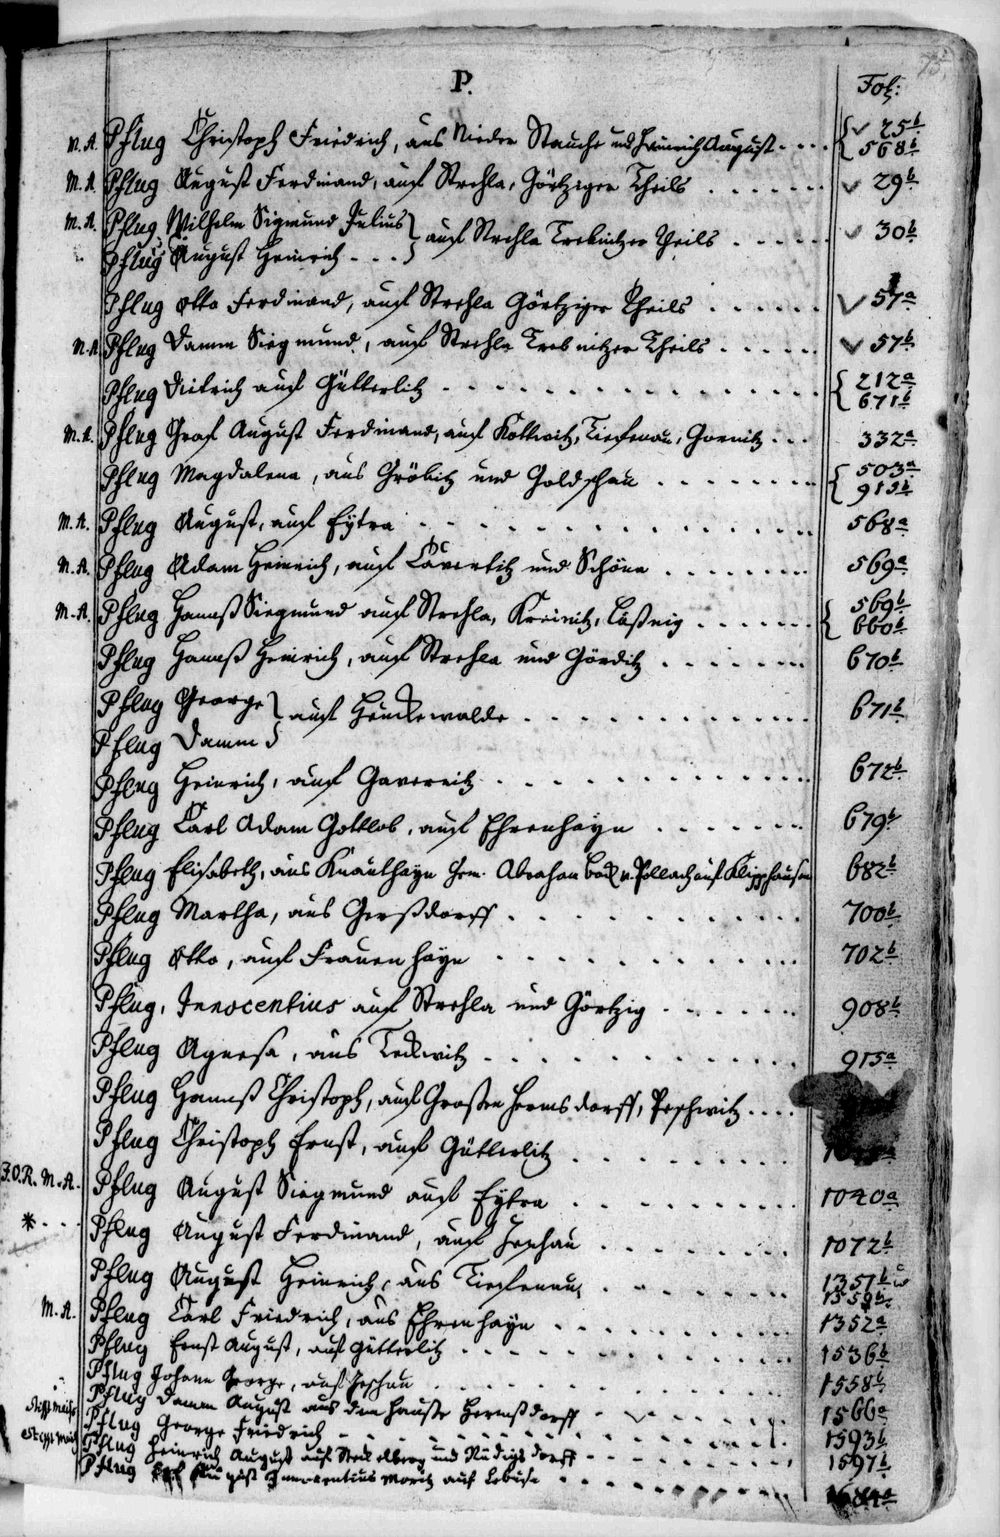 P.
Fol:
M. A. Pflug Christoph Friedrich, aus Nieder Stauche und Heinrich August . . . { 25b
568b
M. A. Pflug August Ferdinand, auf Strehla, Görtziger Theils . . . . . . 29b
M. A. Pflug Wilhelm Sigmund Julius } auf Strehla Trebnitzer Theils . . . . . 30b
Pflug August Heinrich . . . }
Pflug Otto Ferdinand, auf Strehla Görtziger Theils . . . . . . 57a
M. A. Pflug Damm Siegmund, auf Strehla Trebnitzer Theils . . . . . . 57b
Pflug Dietrich auf Gütterlitz . . . . . . . . . . . { 212a
671b
M. A. Pflug Graf August Ferdinand, auf Kottwitz, Tiefenau, Gornitz . . . 332a
Pflug Magdalena, aus Gröbitz und Goldschau . . . . . . . { 503a
915b
M. A. Pflug August, auf Eytra . . . . . . . . . . . 568a
M. A. Pflug Adam Heinrich, auf und Schöna . . . . . . . 569a
M. A. Pflug Hannß Siegmund auf Strehla, Kreinitz, Laßnig . . . . . . { 569b
660b
Pflug Hannß Heinrich, auf Strehla und Görditz . . . . . . . 670b
Pflug George } auf Heuckewalde . . . . . . . . . . . 671b
Pflug Damm }
Pflug Heinrich, auf Gavernitz . . . . . . . . . . . 672b
Pflug Carl Adam Gottlob, auf Ehrenhayn . . . . . . . 679b
Pflug Elisabeth, aus Knauthayn Abraham Bock v. Pollach auf Klipphausen 682b
Pflug Martha, aus Gerßdorff . . . . . . . . . . . 700b
Pflug Otto, auf Frauenhayn . . . . . . . . . . . 702b
Pflug, Innocentius auf Strehla und Görtzig . . . . . . 908b
Pflug Agnesa, aus Teckwitz . . . . . . . . . . . 915a
Pflug Hannß Christoph, auf Großen Hermsdorff, Poschwitz . . . .
Pflug Christoph Ernst, auf Gütterlitz . . . . . . . . .
F. O. R. M. A. Pflug August Siegmund auf Eytra . . . . . . . . . 1040a
* . . . Pflug August Ferdinand, auf . . . . . . . . 1072b
Pflug August Heinrich, aus Tiefenau . . . . . . . 1351b
1559b
M. A. Pflug Carl Friedrich, aus Ehrenhayn . . . . . . . . 1352a
Pflug Ernst August, auf Gütterlitz . . . . . . . . . . 1536b
Pflug Johann George, auf . . . . . . . . . . 1558b
Pflug Damm August aus dem Hause Hermßdorff . . . . . . . . 1566a
Stifft Meiß. Pflug George Friedrich . . . . . . . . . . . 1593b
Stifft Meiß Pflug Heinrich August auf und Rüdigsdorff . . . . . . . 1597b
Pflug August Innocentius Moritz auf Lebusa . . . . . . . . .